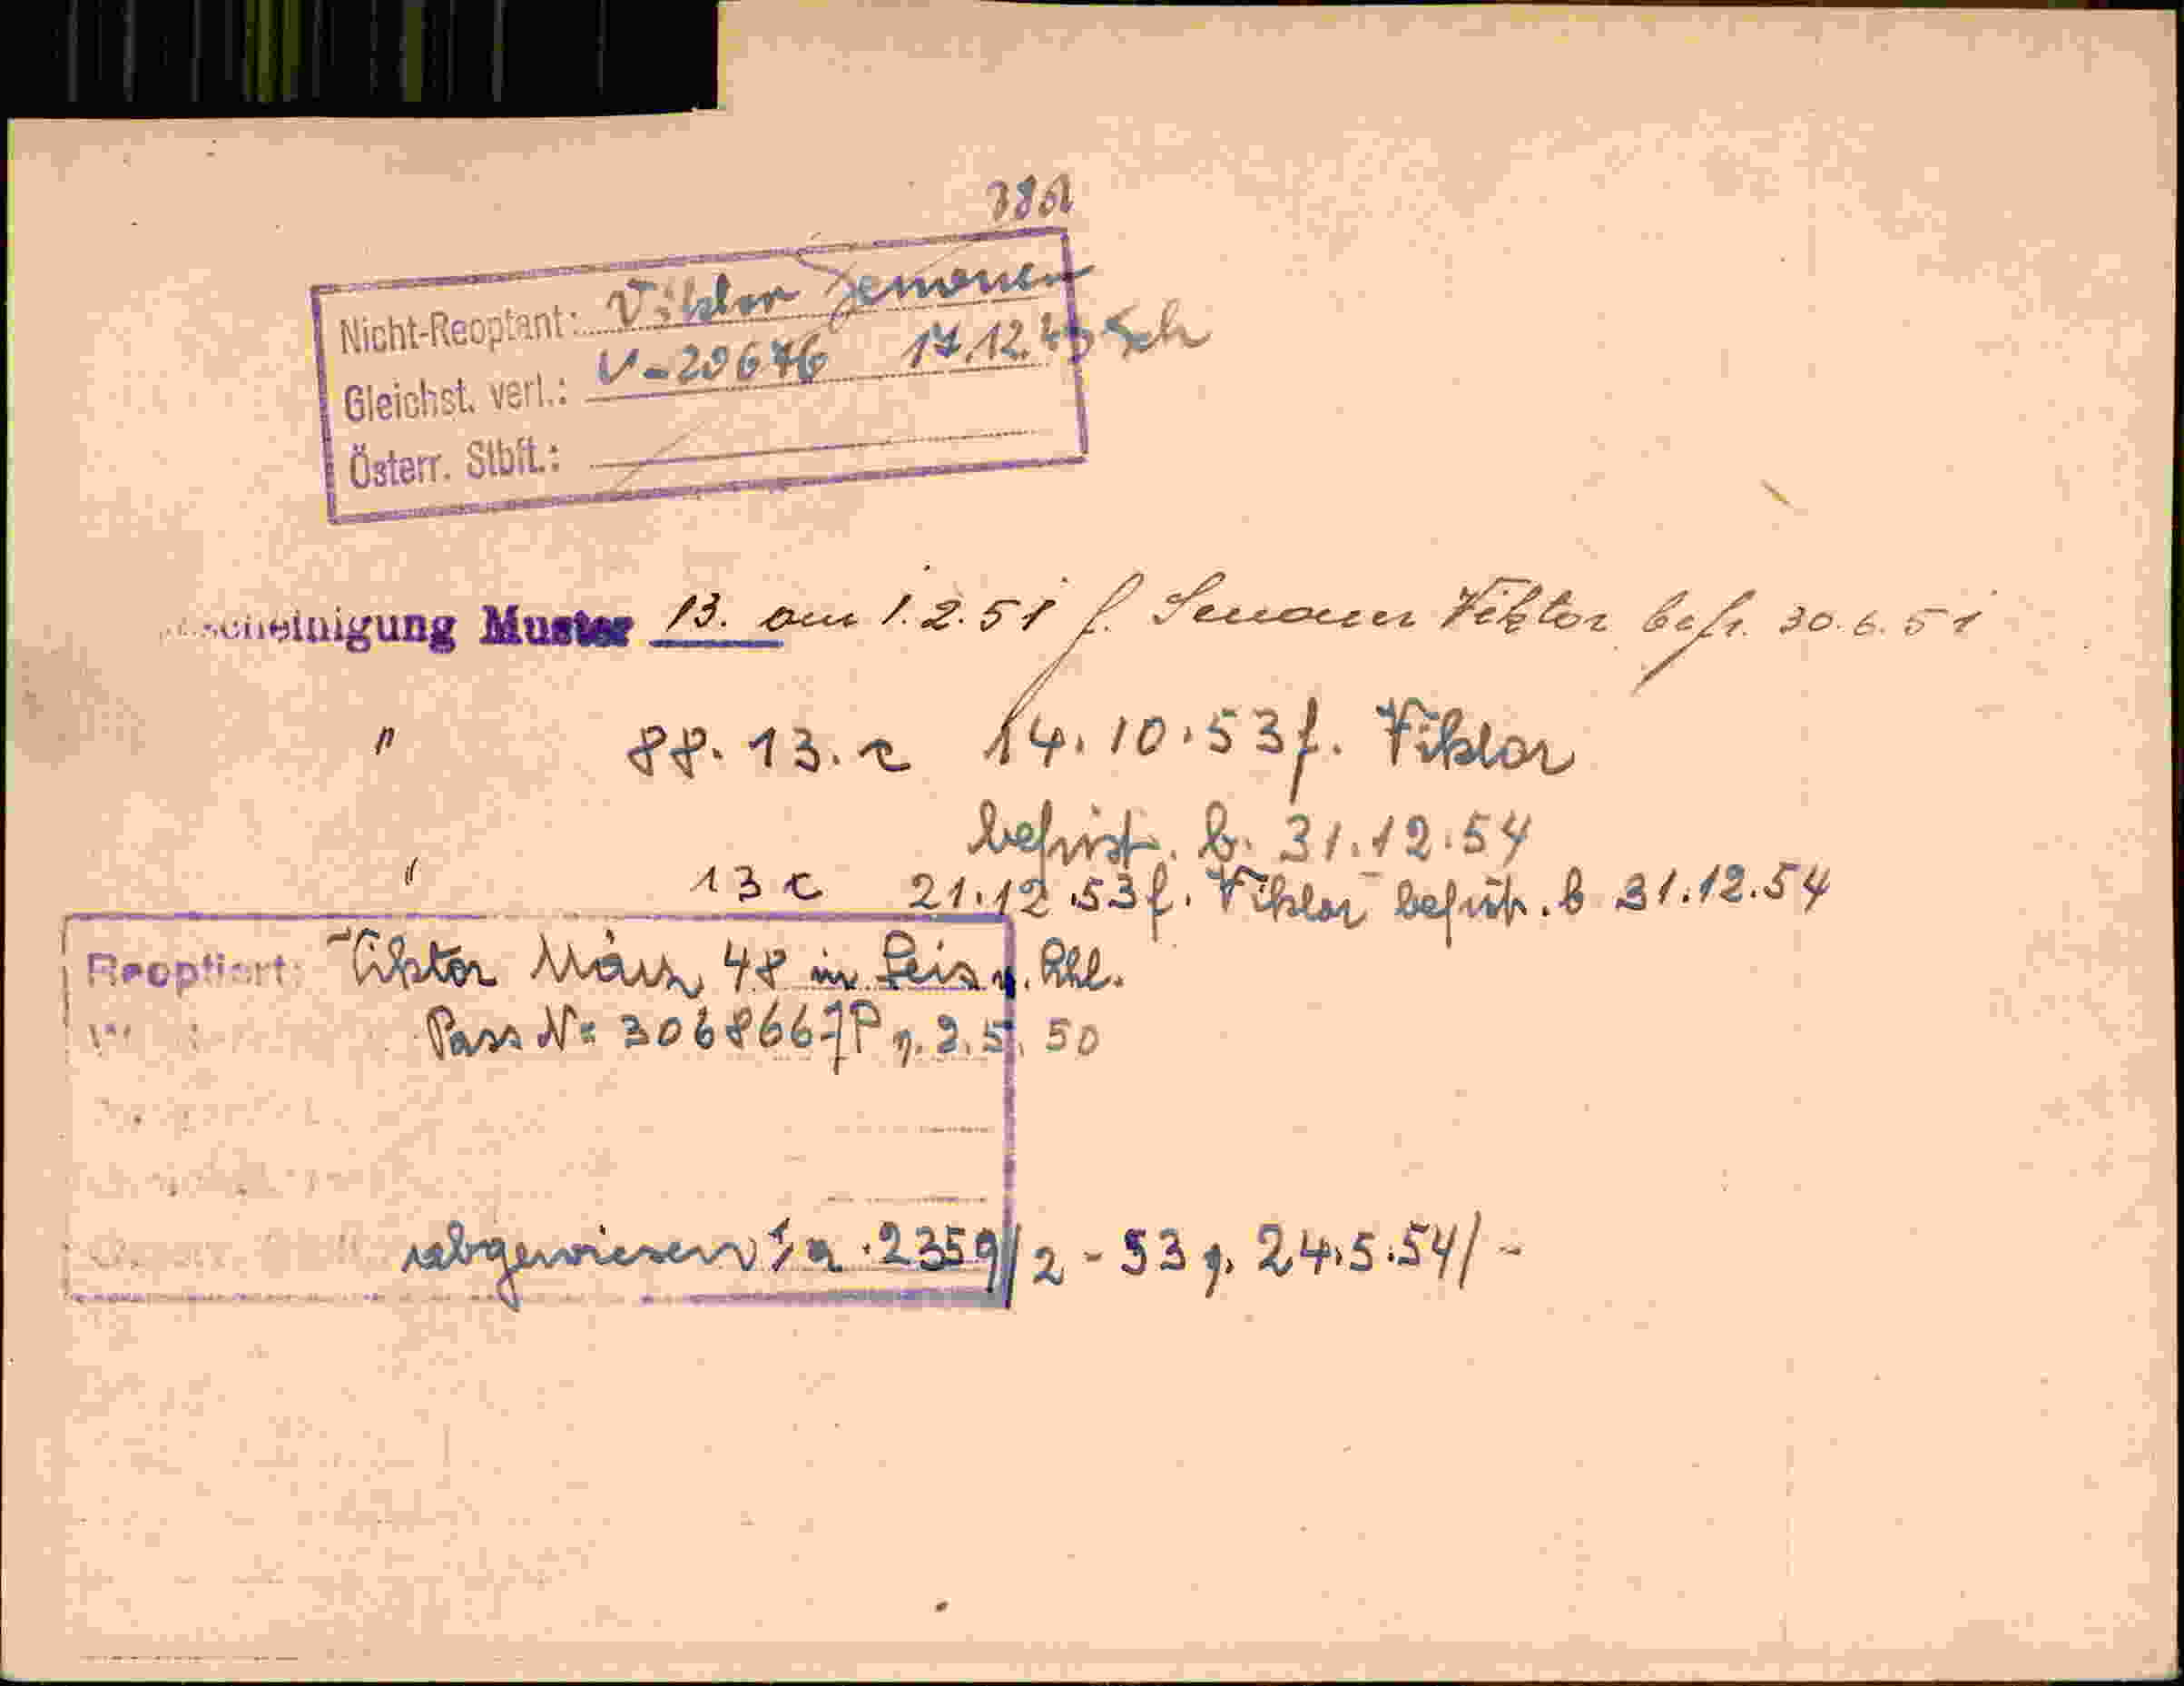 Nicht-Reoptant: Viktor Semonen
Gleichst. verl.: V-29676 17.12.49 Sch
Österr. Stbft.:
scheinigung Muster 13. am 1.2.51 f. Semonen Viktor befr. 30.6.51
" 88. 13. c 14.10.53 f. Viktor
befrist. b. 31.12.54
" 13 c 21.12.53 f. Viktor befrist. b 31.12.54
Reoptiert: Viktor März 48 in
Pass Nº 3068667P v. 2.5.50
abgewiesen Ia 2359/2-53 v. 24.5.54/-